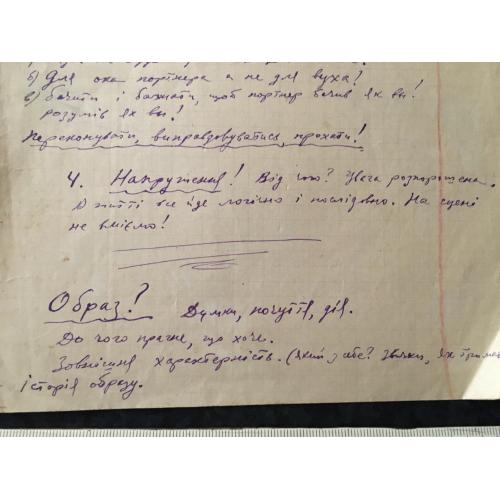 б) Для ока партнера а не для вуха?
в) бачити і бажати, щоб партнер бачив як ви!
розумів як ви!
Переконувати, виправдовуватись, прохати!
4. Напруження! Від чого? Увага розпорошена.
В житті все йде логічно і послідовно. На сцені
не вміємо!
Образ? Думки, почуття, дія.
До чого прагне, що хоче.
Зовнішня характерність. (який з себе? Звички, як
історія образу.